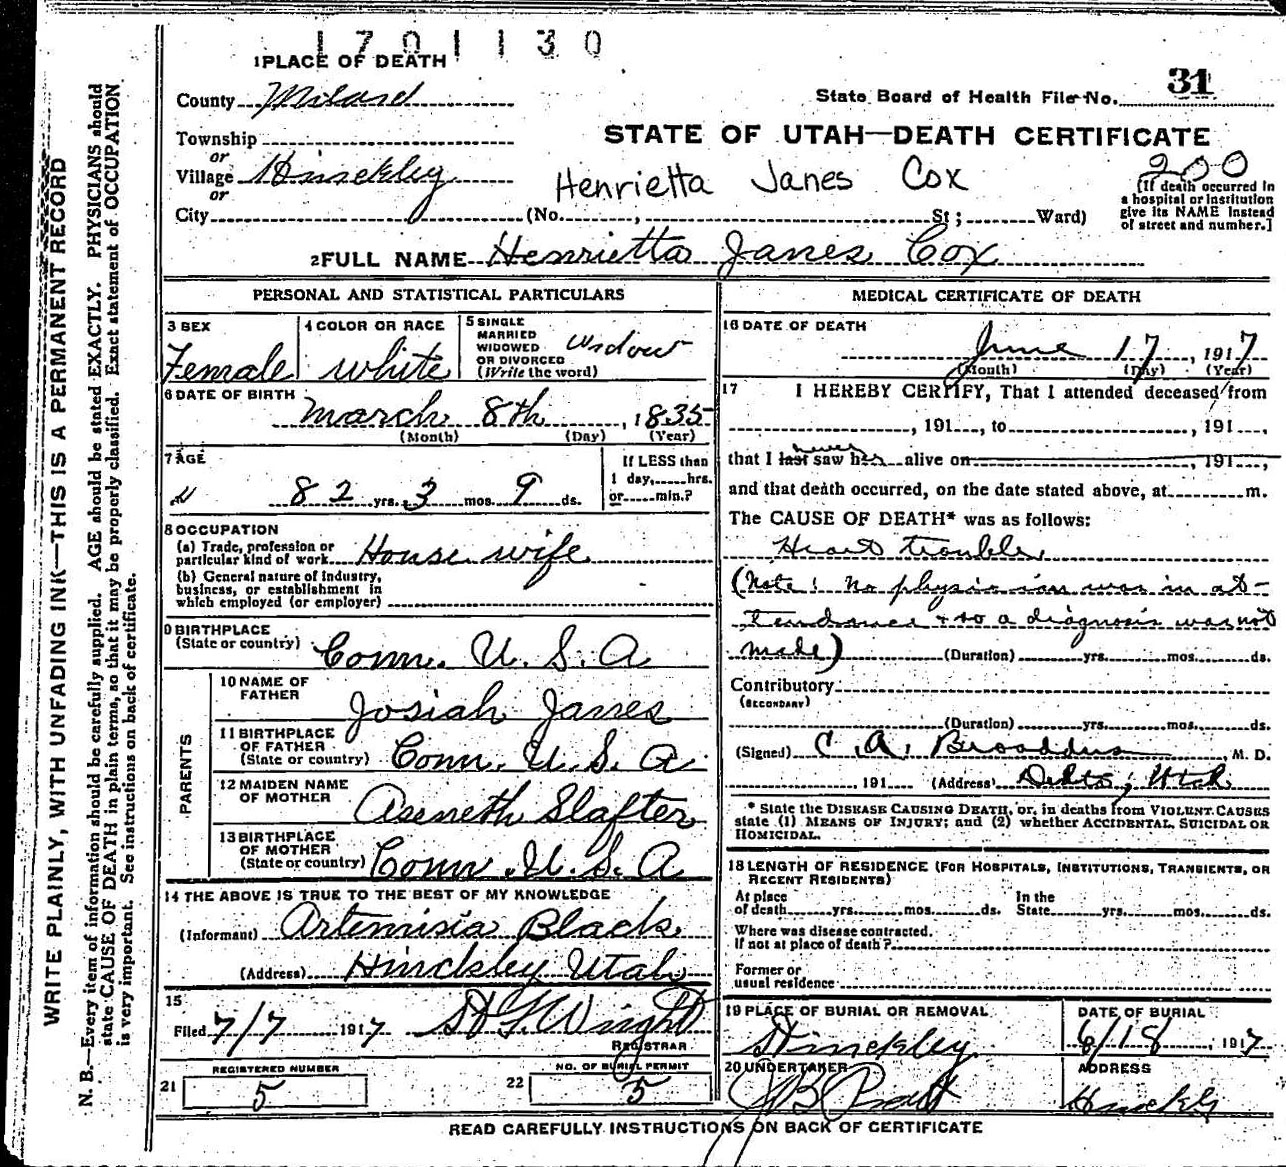 1701130
1 PLACE OF DEATH
County Milard
State Board of Health File No. 31
Township
STATE OF UTAH—DEATH CERTIFICATE
or
Village Hinckley
Henrietta Janes Cox
200
or
City (No. , St; Ward)
(If death occurred in
a hospital or institution
give its NAME instead
of street and number.]
2 FULL NAME Henrietta Janes Cox
PERSONAL AND STATISTICAL PARTICULARS
3 SEX
Female
4 COLOR OR RACE
white
5 SINGLE
MARRIED
WIDOWED
OR DIVORCED
(Write the word)
widow
6 DATE OF BIRTH
March 8th, 1835
(Month) (Day) (Year)
7 AGE
82 yrs. 3 mos. 9 ds.
If LESS than
1 day, hrs.
or min.?
8 OCCUPATION
(a) Trade, profession or
particular kind of work House wife
(b) General nature of industry,
business, or establishment in
which employed (or employer)
9 BIRTHPLACE
(State or country) Conn. U. S. A
PARENTS
10 NAME OF
FATHER
Josiah Janes
11 BIRTHPLACE
OF FATHER
(State or country) Conn. U. S. A
12 MAIDEN NAME
OF MOTHER
Aseneth Slafter
13 BIRTHPLACE
OF MOTHER
(State or country) Conn. U. S. A
14 THE ABOVE IS TRUE TO THE BEST OF MY KNOWLEDGE
(Informant) Artemisia Black
(Address) Hinckley Utah
15
Filed 7/7 1917 Wright
REGISTRAR
REGISTERED NUMBER
21 5
NO. OF BURIAL PERMIT
22 5
MEDICAL CERTIFICATE OF DEATH
16 DATE OF DEATH
June 17, 1917
(Month) (Day) (Year)
17 I HEREBY CERTIFY, That I attended deceased from
, 191 , to , 191 ,
never
that I last saw her alive on , 191 ,
and that death occurred, on the date stated above, at m.
The CAUSE OF DEATH* was as follows:
Heart trouble
(Note: No physician was in at-
tendance & so a diagnosis was not
made) (Duration) yrs. mos. ds.
Contributory
(SECONDARY)
(Duration) yrs. mos. ds.
(Signed) C. A. Broaddus M. D.
191 (Address) Delta, Utah
* State the DISEASE CAUSING DEATH, or, in deaths from VIOLENT CAUSES
state (1) MEANS OF INJURY; and (2) whether ACCIDENTAL, SUICIDAL OR
HOMICIDAL.
18 LENGTH OF RESIDENCE (FOR HOSPITALS, INSTITUTIONS, TRANSIENTS, OR
RECENT RESIDENTS)
At place
of death yrs. mos. ds.
In the
State yrs. mos. ds.
Where was disease contracted,
If not at place of death?
Former or
usual residence
19 PLACE OF BURIAL OR REMOVAL
Hinckley
DATE OF BURIAL
6/18, 1917
20 UNDERTAKER
J B Pratt
ADDRESS
Hinckly
READ CAREFULLY INSTRUCTIONS ON BACK OF CERTIFICATE
WRITE PLAINLY, WITH UNFADING INK—THIS IS A PERMANENT RECORD
N. B.—Every item of information should be carefully supplied. AGE should be stated EXACTLY. PHYSICIANS should
state CAUSE OF DEATH in plain terms, so that it may be properly classified. Exact statement of OCCUPATION
is very important. See instructions on back of certificate.